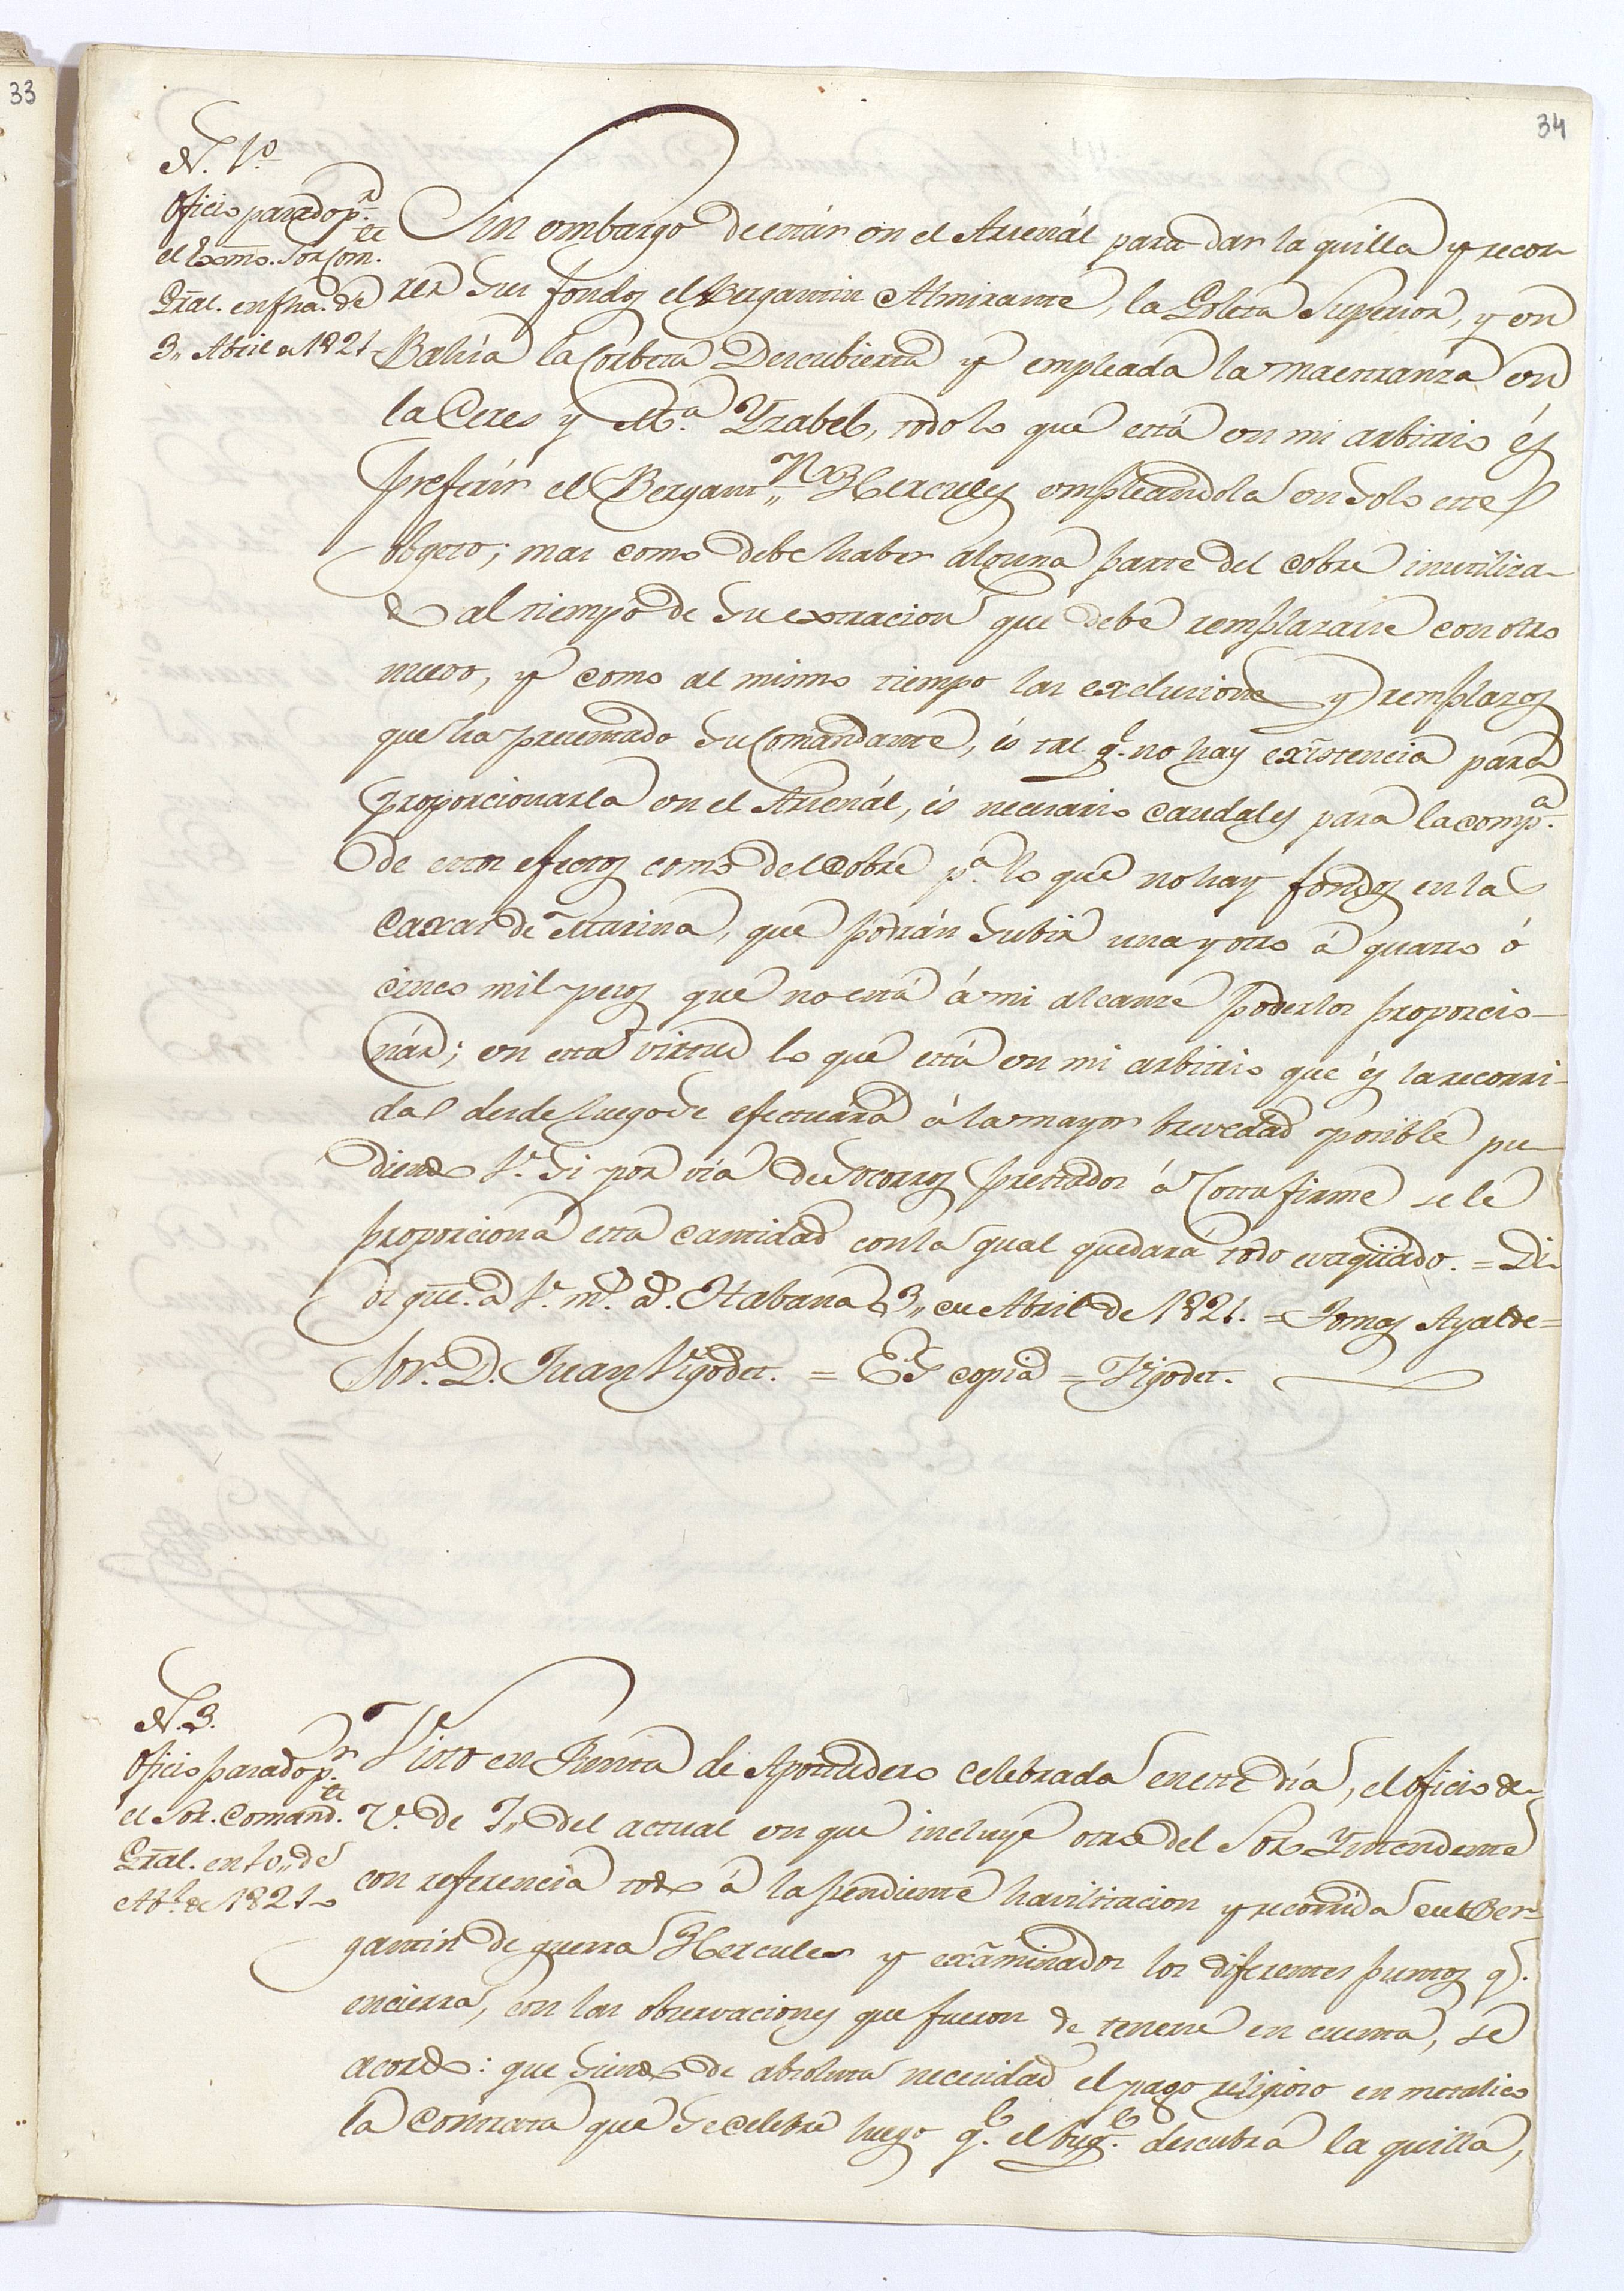 33
34
N. 1º
Oficio parado pr.
el Exmo. Sor Com.te
Gral. en fha. de
3,, Abril de 1821
Sin embargo de estár en el Arsenál para dar la quilla y recor-
rer sus fondos el Bergantin Almirante, la Goleta Superior, y en
Bahía la Corbeta Descubierta y empleada la maestranza en
la Ceres y Ma. Ysabel, todo lo que está en mi arbitrio és
preferir el Bergantn,, Hercules empleandola en solo este
obgeto; mas como debe haber alguna parte del cobre inutiliza-
do al tiempo de su extracion que debe remplazarse con otro
nuevo, y como al mismo tiempo las exclusiones y remplazos
que ha presentado su Comandante, és tal qe. no hay existencia para
proporcionarla en el Arsenál, és necesario caudales para la compa.
de estos efectos como del Cobre pa. lo que no hay fondos en las
Caxas de Marina, que podrán subir una y otro á quatro ó
cinco mil pesos que no está á mi alcance poderlos proporcio-
nár; en esta virtud lo que está en mi arbitrio que és la recorri-
da desde luego se efectuára á la mayor brevedad posible pu-
diendo V. si por vía de Socorros prestados á Costafirme se le
proporciona esta cantidad con la qual quedará todo evaqüado. = Di-
os gue. a V. ms. as. Habana 3,, de Abril de 1821. = Tomas Ayalde =
Sor. D. Juan Vigodet. = Es copia = Vigodet.
N. 3.
Oficio parado pr.
el Sor. Comandte.
Gral. en 10,, de
Abl. de 1821
Visto en Junta de Apostadero celebrada en este día, el oficio de
V. de 7,, del actual en que incluye otro del Sor Yntendente
con referencia todo á la pendiente havilitacion y recorrida del Ber-
gantin de guerra Hercules y exâminados los diferentes puntos qe.
encierra, con las observaciones que fueron de tenerse en cuenta, se
acordo: que siendo de absoluta necesidad el pago religioso en metalico
la contrata que se celebre luego qe. el buqe. descubra la quilla,